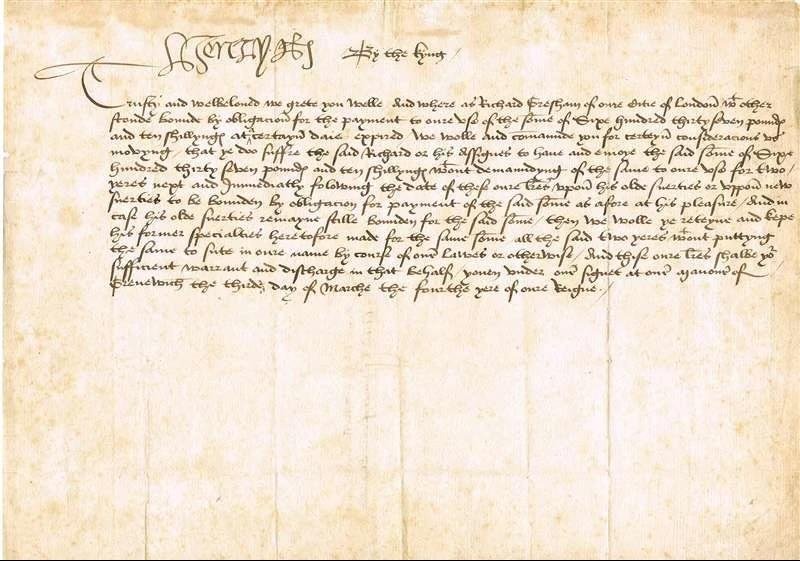 Henry R By the kyng
Trusty and welbeloved we grete you welle And where as Richard Gresham of oure Citie of London wt other
stonde bounde by obligacion for the payment to oure vse of the some of Sixe hundred thirty seven poundes
and ten shyllynges at a certayn daie expired We wolle and comaunde you for certeyn consideracions vs
movyng / that ye doo suffre the said Richard or his Assignes to have and enioye the said some of Sixe
hundred thirty seven poundes and ten shyllynges wtout demaundyng of the same to oure vse for two
yeres next and Immediatly folowing the date of these oure lres vpon his olde suerties or vppon new
suerties to be bounden by obligacion for payment of the said some as afore at his pleasure / And in
case his olde suerties remayne stille bounden for the said some / then we wolle ye reteyne and kepe
his former specialties heretofore made for the same some all the said two yeres wtout puttyng
the same to sute in oure name by cours of our lawes or otherwise / And thise oure lres shalbe yor
sufficient warrant and discharge in that behalf / yoven vnder our signet at our manour of
Grenewich the thirde day of Marche the fourthe yere of oure Reigne /